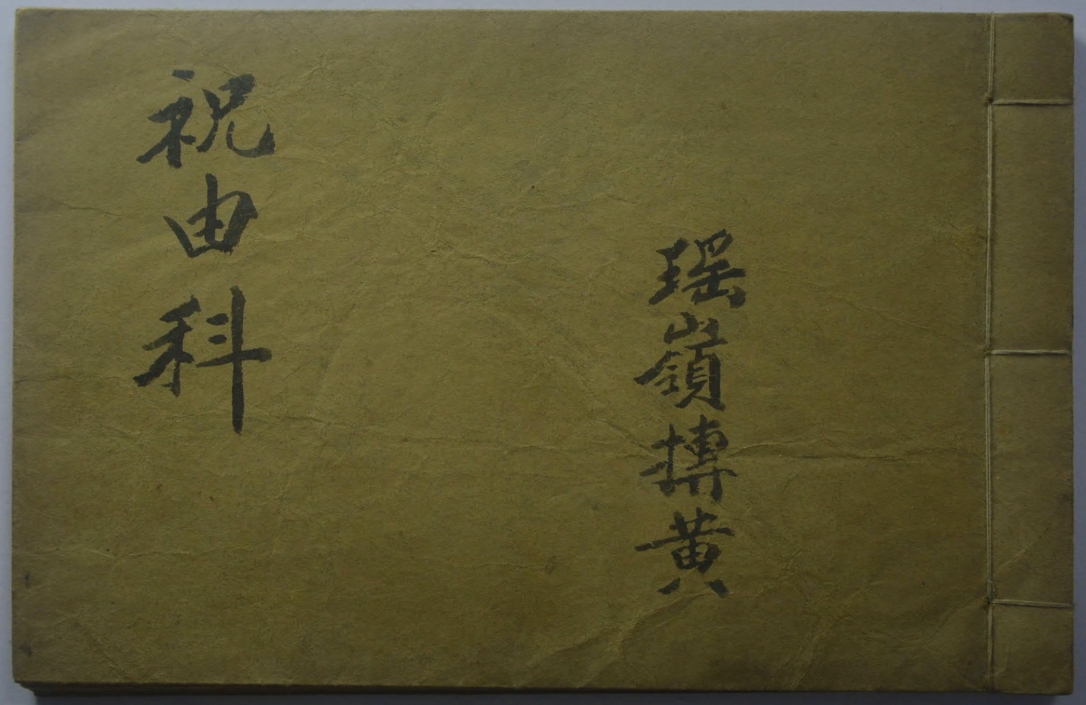 瑶嶺搏黄
祝由科